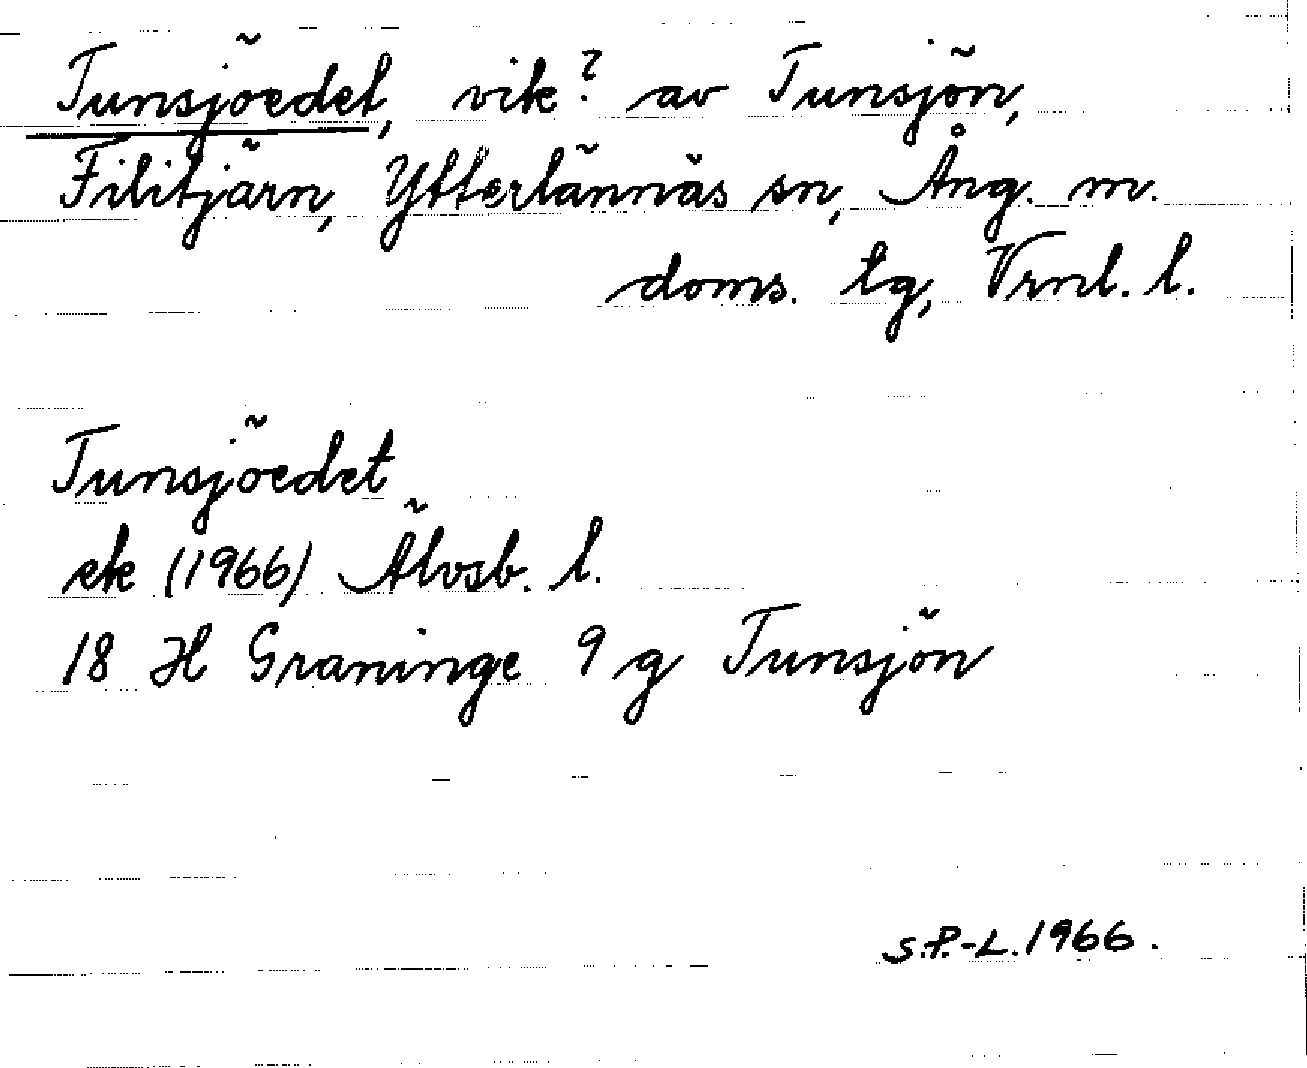 Tunsjöedet, vik? av Tunsjön,
Filitjärn, Ytterlännäs sn, Ång. m.
doms. lg, Vrnl. l.
Tunsjöedet
ek (1966) Älvsb. l.
18 H Graninge 9 g Tunsjön
S.P.-L. 1966.